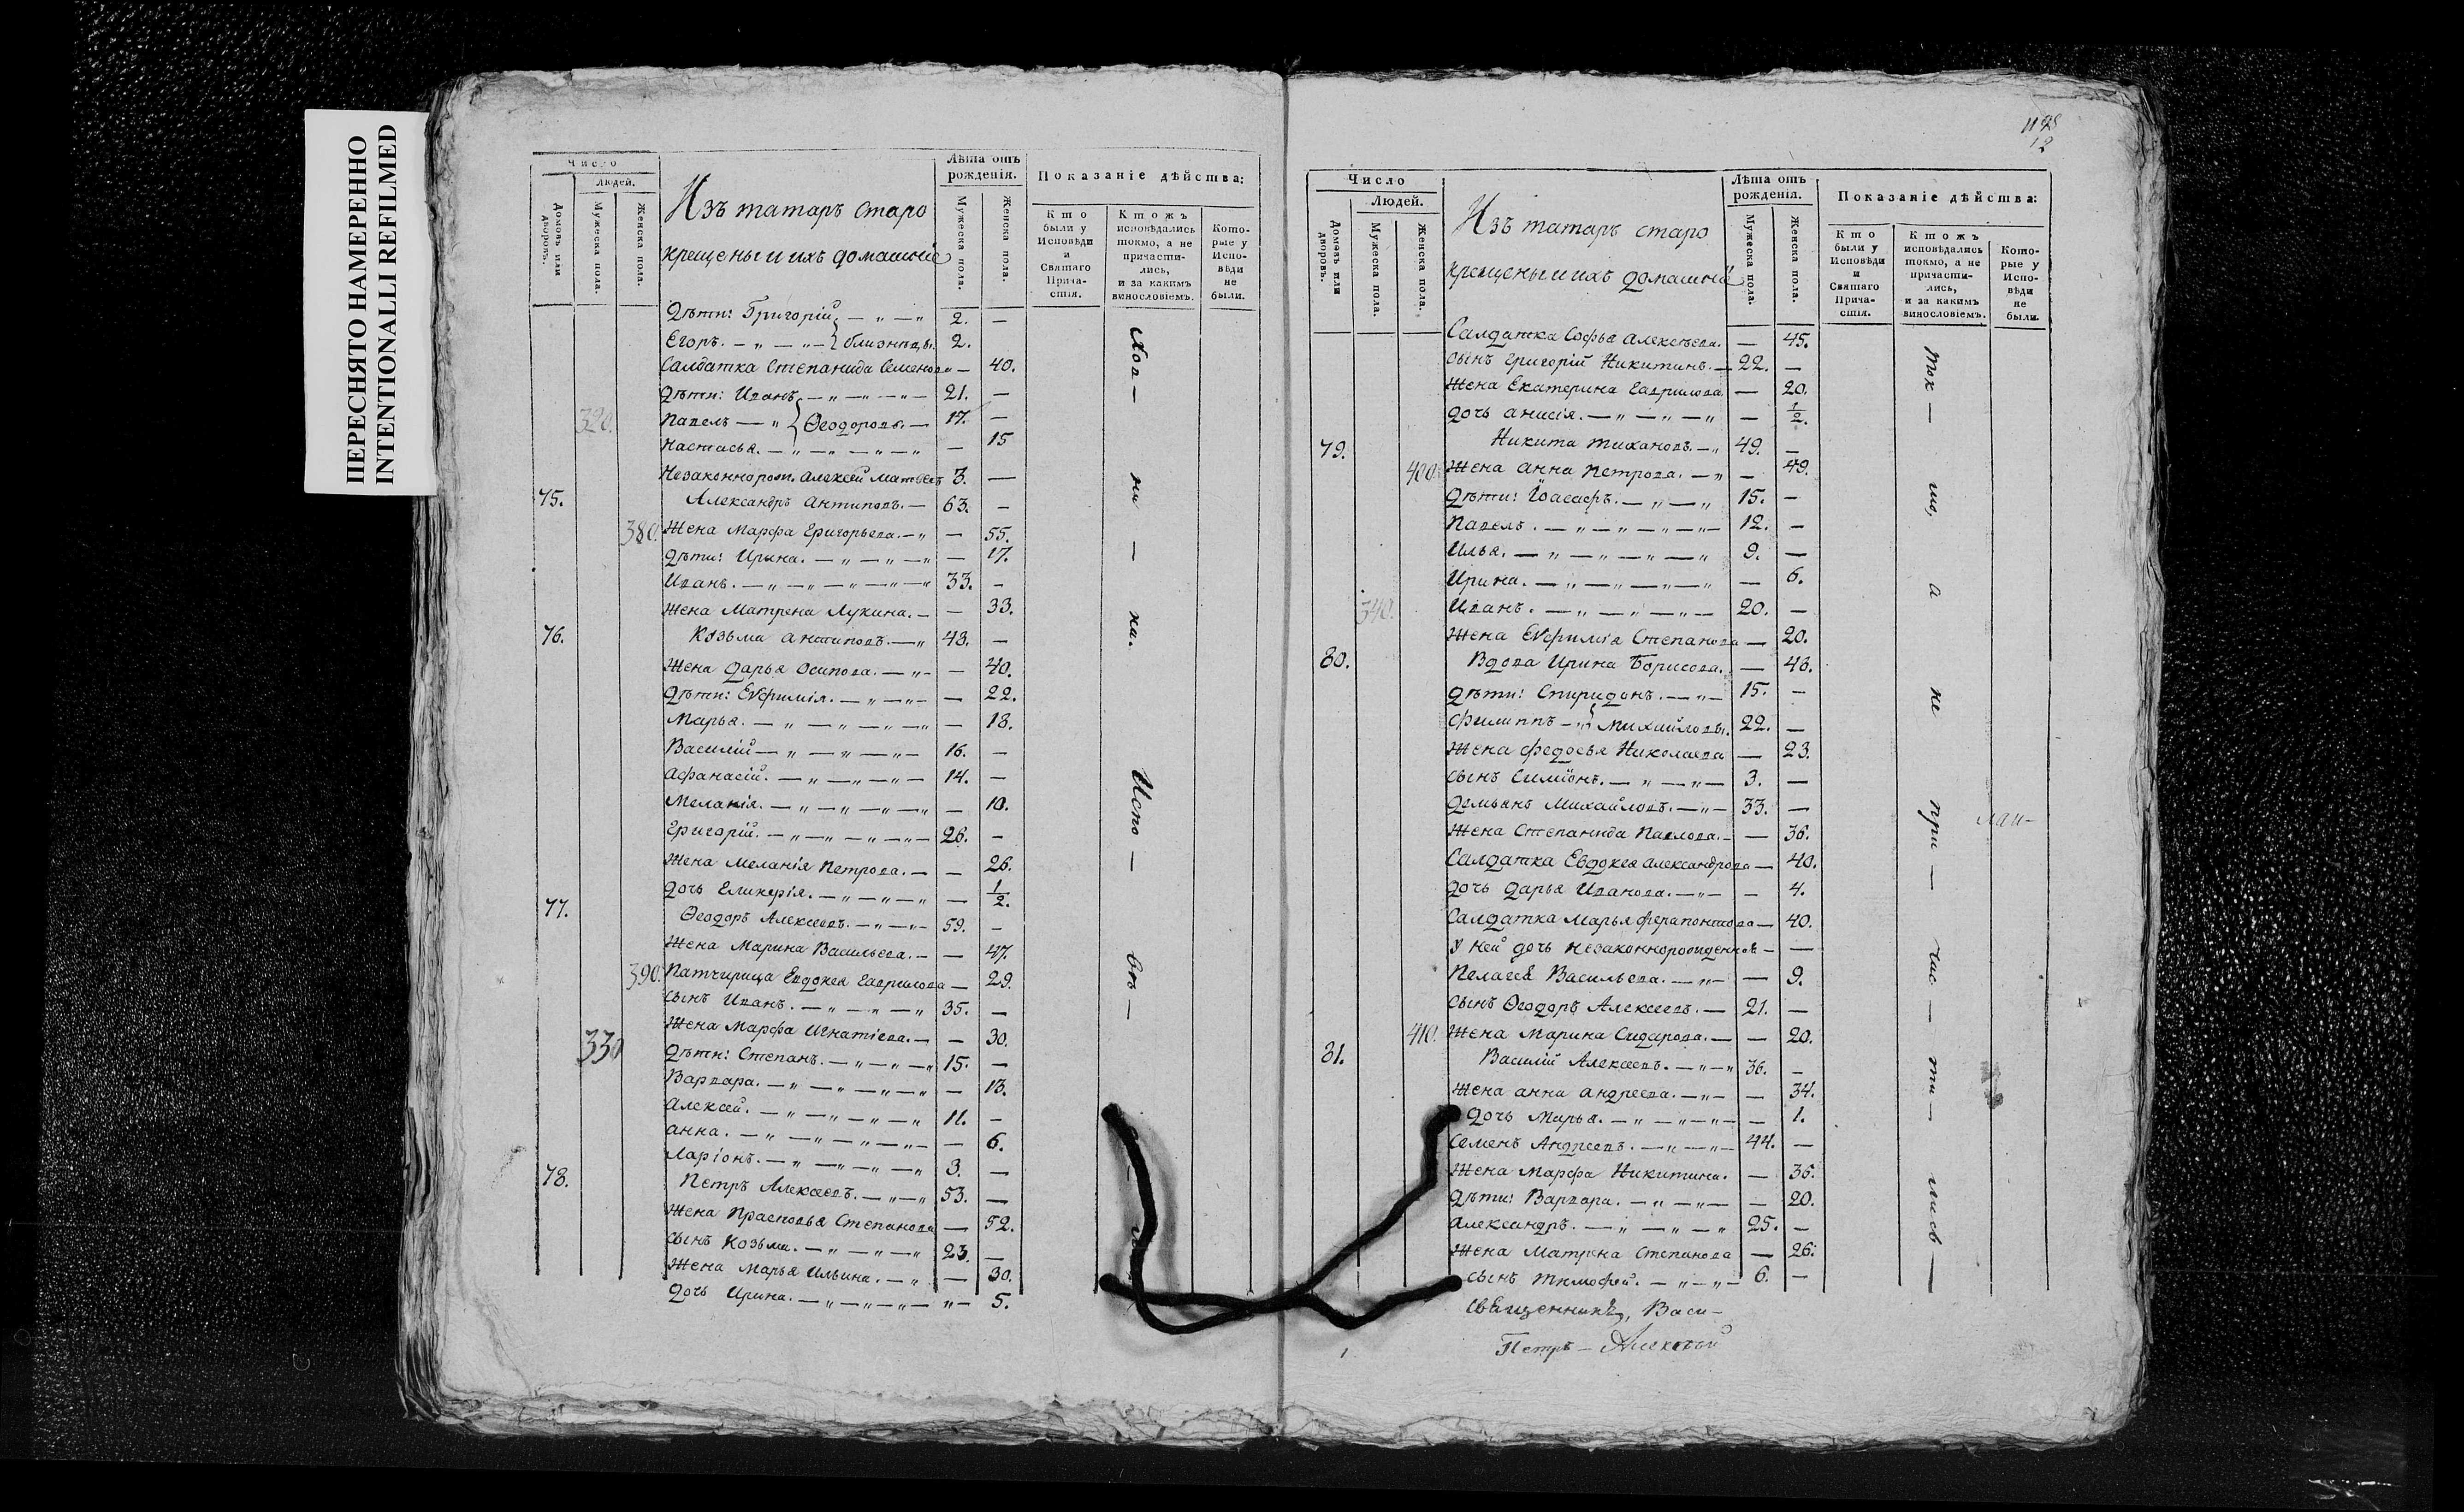 ПЕРЕСНЯТО НАМЕРЕННО
INTENTIONALLI REFILMED
Число
Людей.
Домовъ или дворовъ.
Мужеска пола.
Женска пола.
Изъ татаръ старо
крещены и ихъ домашніе
Лѣта отъ рожденія.
Мужеска пола.
Женска пола.
Показаніе дѣйства:
Кто были у Исповѣди и Святаго Прича-стія.
Ктожъ исповѣдались токмо, а не причасти-лись, и за какимъ винословіемъ.
Кото-рые у Испо-вѣди не были.
Дѣти: Григорій — „ — „ 2. —
Егоръ. — „ — „ — } близнецы. 2.
Салдатка Степанида Семенова — 40.
Дѣти: Иванъ — „ — „ — „ — 21. —
320. Павелъ — „ } Ѳеодоровы. — 17. —
Настасья. — „ — „ — „ — „ — 15
Незаконнорож. Алексей Матвеевъ 3. —
75. Александръ Антиповъ. — 63. —
380. Жена Марфа Григорьева. — „ — 55.
Дѣти: Ирина. — „ — „ — „ — 17.
Иванъ. — „ — „ — „ — „ — „ 33. —
Жена Матрена Лукина. — — 33.
76. Козьма Антиповъ. — „ 43. —
Жена Дарья Осипова. — „ — — 40.
Дѣти: Евфимія. — „ — „ — — 22.
Марья. — „ — „ — „ — „ — 18.
Василій — „ — „ — „ — 16. —
Афанасій. — „ — „ — „ — 14. —
Меланія. — „ — „ — „ — „ — 10.
Григорій. — „ — „ — „ — „ — 26. —
Жена Меланія Петрова. — — 26.
Дочь Гликерія. — „ — „ — „ — 1/2.
77. Ѳеодоръ Алексеевъ. — „ — „ — 59. —
Жена Марина Васильева. — — 47.
390. Патчирица Евдокея Гаврилова — 29.
Сынъ Иванъ. — „ — „ — „ 35. —
Жена Марфа Игнатіева. — — 30.
330 Дѣти: Степанъ. — „ — „ — „ 15. —
Варвара. — „ — „ — „ — „ — 13.
Алексей. — „ — „ — „ — „ 11. —
Анна. — „ — „ — „ — „ — — 6.
Ларіонъ. — „ — „ — „ — „ 3. —
78. Петръ Алексеевъ. — „ — „ 53. —
Жена Прасковья Степанова — 52.
Сынъ Козьма. — „ — „ — „ 23. —
Жена Марья Ильина. — „ — 30.
Дочь Ирина. — „ — „ — „ — „ — 5.
на — ка.
Испо —
вѣ —
12
Число
Людей.
Домовъ или дворовъ.
Мужеска пола.
Женска пола.
Изъ татаръ старо
крещены и ихъ домашніе
Лѣта отъ рожденія.
Мужеска пола.
Женска пола.
Показаніе дѣйства:
Кто были у Исповѣди и Святаго Прича-стія.
Ктожъ исповѣдались токмо, а не причасти-лись, и за какимъ винословіемъ.
Кото-рые у Испо-вѣди не были.
Салдатка Софья Алексеева. — 45.
Сынъ Григорій Никитинъ. — 22. —
Жена Екатерина Гаврилова — 20.
Дочь Анисія. — „ — „ — „ — 1/2.
79. Никита Тихановъ. — „ 49. —
400. Жена Анна Петрова. — „ — 49.
Дѣти: Іоасафъ. — „ — „ 15. —
Павелъ. — „ — „ — „ — „ — 12. —
Илья. — „ — „ — „ — „ 9. —
Ирина. — „ — „ — „ — „ — 6.
340. Иванъ. — „ — „ — „ — 20. —
Жена Евфимія Степанова — 20.
80. Вдова Ирина Борисова. — 43.
Дѣти: Спиридонъ. — „ — 15. —
Филиппъ — „ } Михайловы. 22. —
Жена Федосья Николаева — 23.
Сынъ Симіонъ. — „ — „ — 3. —
Демьянъ Михайловъ. — „ — 33. —
Жена Степанида Павлова. — — 36.
Салдатка Евдокея Александрова — 40.
Дочь Дарья Иванова. — „ — — 4.
Салдатка Марья Ферапонтова — 40.
У ней дочь незаконнорожденная — —
Пелагея Васильева. — „ — — 9.
Сынъ Ѳеодоръ Алексеевъ. — 21. —
410. Жена Марина Сидарова. — — 20.
81. Василій Алексеевъ. — „ — „ 36. —
Жена Анна Андреева. — „ — — 34.
Дочь Марья. — „ — „ — „ — — 1.
Семенъ Андреевъ. — „ — „ — 44. —
Жена Марфа Никитина. — 36.
Дѣти: Варвара. — „ — „ — — 20.
Александръ. — „ — „ — „ 25. —
Жена Матрена Степанова — 26.
Сынъ Тимофей. — „ — „ — 6. —
ток — мо, а не при — час — ти — лись —
Священникъ, Васи —
Петръ — Алексѣй